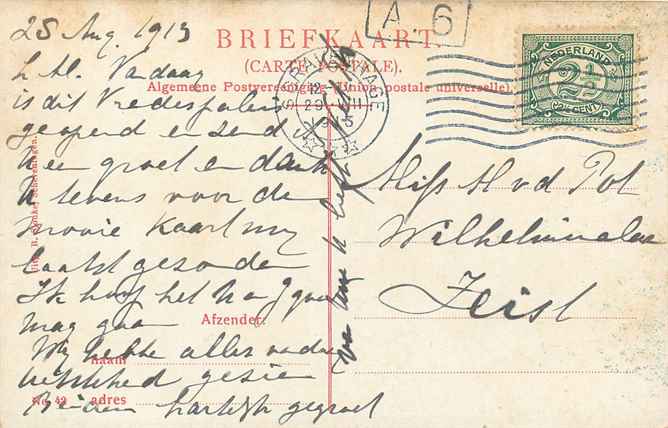 25 Aug. 1913
BRIEFKAART.
(CARTE POSTALE).
Algemeene Postvereeniging (Union postale universelle).
A 6
'S-GRAVENHAGE
NEDERLAND
2½
(2½ CENT)
L. M. Vandaag
is dit Vredespaleis
geopend en zend
U een groet en dank
U tevens voor de
mooie kaart mij
laatst gezonden
Ik hoop het U goed
mag gaan
Wij hebben alles vandaag
gezien
hartelijk gegroet
Miss H v d Pol
Wilhelminalaan
Zeist
Afzender:
naam
adres